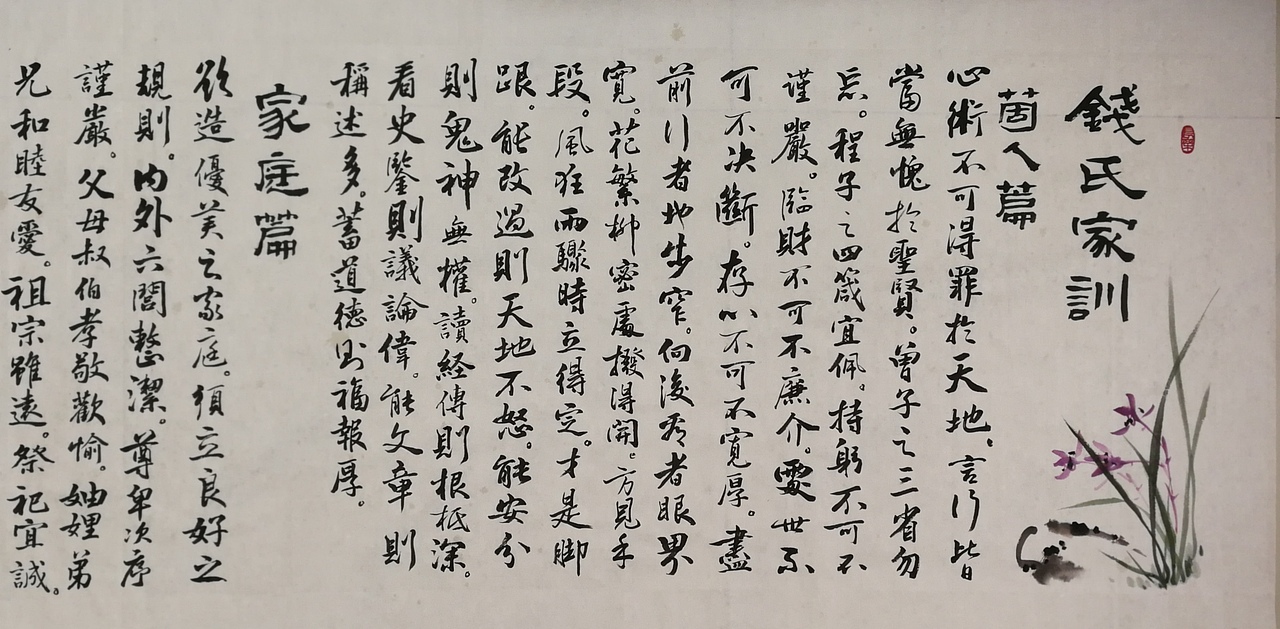 錢氏家訓
箇人篇
心術不可得罪於天地、言行皆
當無愧於聖賢。曾子之三省勿
忘。程子之四箴宜佩。持躬不可不
謹嚴。臨財不可不廉介。處世不
可不决斷。存心不可不寬厚。盡
前行者地步窄。向後看者眼界
寬。花繁柳密處撥得開。方見手
段。風狂雨驟時立得定。才是脚
跟。能改過則天地不怒。能安分
則鬼神無權。讀経傳則根柢深。
看史鑒則議論偉。能文章則
稱述多。蓄道德則福報厚。
家庭篇
欲造優美之家庭。須立良好之
規則。内外六閭整潔。尊卑次序
謹嚴。父母叔伯孝敬歡愉。妯娌弟
兄和睦友愛。祖宗雖遠。祭祀宜誠。